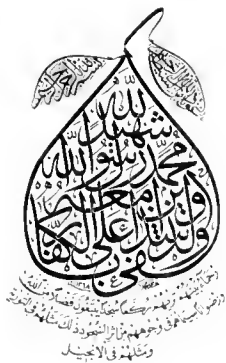 وكفى بالله
شهيدا
محمد رسول الله
والذين معه
أشداء على الكفار
رحماء بينهم تراهم ركعا سجدا يبتغون فضلا من الله
ورضوانا سيماهم في وجوههم من اثر السجود ذلك مثلهم في التورية
ومثلهم في الانجيل